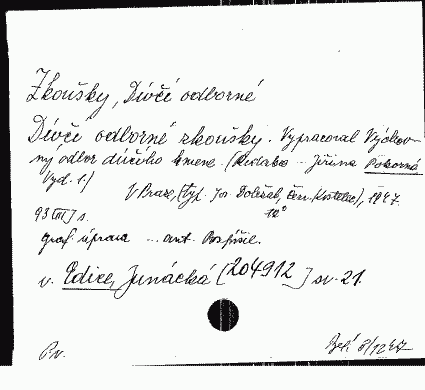 Zkoušky, Dívčí odborné
Dívčí odborné zkoušky. Vypracoval Výchov-
ný odbor dívčího kmene. (Redakce - Jiřina Pokorná
Vyd. 1)
V Praze, (Typ. Jos. Doležal, Červ. Kostelec), 1947.
12°
93 [III] s.
graf. úprava ... ant. Pospíšil.
v. Edice, Junácká [204912] sv. 21.
P.v. 8/12 47